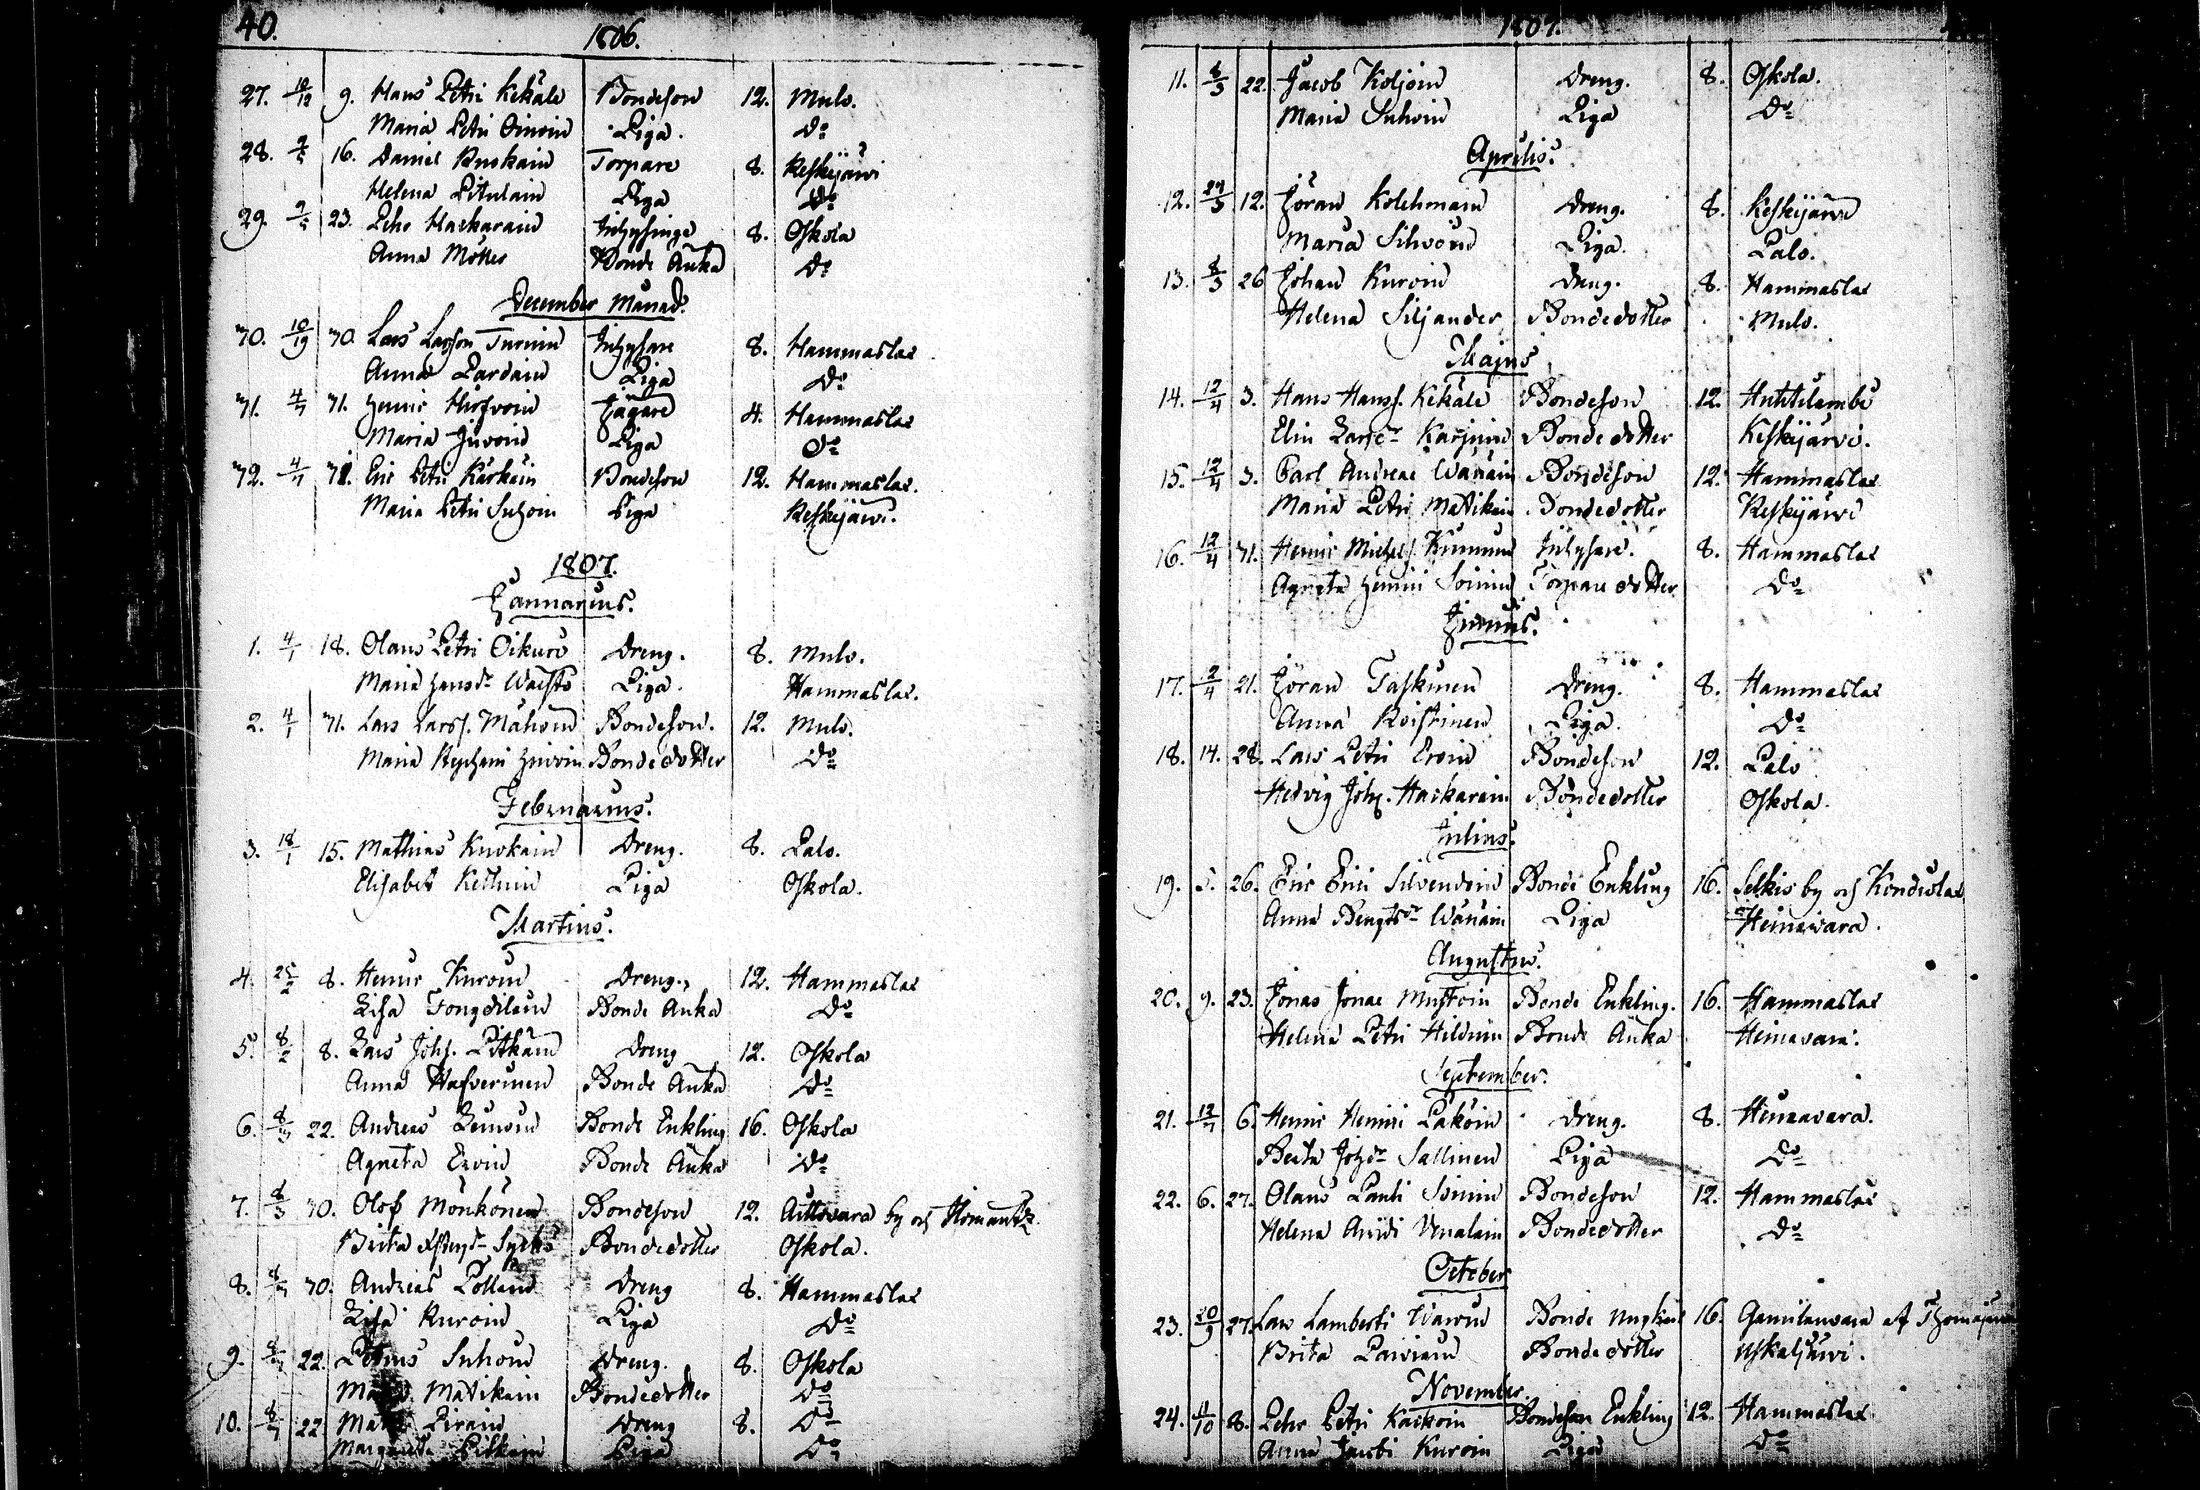 40.
1806.
27. 10/12 9. Hans Petri Kekäle Bondeson 12. Mulo.
Maria Petri Oinoin Piga. Do
28. 16. Daniel Ruskain Torpare 8. Keskijärvi
Helena Pitulain Piga Do
29. 23. Pehr Haekarain Inhysinge 8. Oskola
Anna Möller Bonde Änka Do
December Månad.
30. 10/19 30. Lars Larsson Turuin Inhysare 8. Hammaslax
Anna Pardain Piga Do
31. 31. Henric Hirfvoin Jägare 4. Hammaslax
Maria Juvoin Piga Do
32. 31. Eric Petri Kärkäin Bondeson 12. Hammaslax.
Maria Petri Suhoin Piga Keskijärvi.
1807.
Januarius.
1. 4/1 18. Olaus Petri Oikuro Dreng. 8. Mulo.
Maria Hansdr Piga. Hammaslax.
2. 4/1 31. Lars Larss. Mähoin Bondeson. 12. Mulo.
Maria Bondedotter Do
Februarius.
3. 18/1 15. Mathias Kuokain Dreng. 8. Palo.
Elisabet Kettuin Piga Oskola.
Martius.
4. 25/2 8. Henric Kuroin Dreng. 12. Hammaslax
Lisa Bonde Änka Do
5. 8/2 8. Lars Johs. Pitkäin Dreng 12. Oskola
Anna Hafverinen Bonde Änka Do
6. 8/3 22. Andreas Leinoin Bonde Enkling 16. Oskola
Agneta Ervin Bonde Änka Do
7. 8/3 30. Olof Mönkönen Bondeson 12. by och
Brita Bondedotter Oskola.
8. 8/3 30. Andreas Pöllain Dreng 8. Hammaslax
Lisa Kuroin Piga Do
9. 22. Petrus Suhoin Dreng. 8. Oskola
Matikain Bondedotter Do
10. 22. Pirain Dreng 8. Do
Margareta Pitkain Piga Do
1807.
11. 8/3 22. Jacob Koljoin Dreng. 8. Oskola.
Maria Suhoin Piga Do
Aprilis.
12. 29/3 12. Jöran Kolehmain Dreng. 8. Keskijärvi
Maria Silvoin Piga. Palo.
13. 8/3 26 Johan Kuroin Dreng. 8. Hammaslax
Helena Siljander Bondedotter Mulo.
Majus
14. 12/4 3. Hans Hanss. Kekäle Bondeson 12. Huttilambi
Elin Larsdr Karjuin Bondedotter Keskijärvi.
15. 12/4 3. Carl Andreae Wänäin Bondeson 12. Hammaslax
Maria Petri Matikain Bondedotter Keskijärvi
16. 12/4 31. Henric Michels. Kinnuin Inhysare. 8. Hammaslax
Agneta Henrici Soinin Torpare dotter Do
Junius.
17. 2/4 21. Jöran Taskinen Dreng. 8. Hammaslax
Anna Koistinen Piga. Do
18. 14. 28. Lars Petri Ervin Bondeson 12. Palo
Hedvig Joh. Haekarain Bondedotter Oskola.
Julius.
19. 5. 26. Eric Erici Silvendoin Bonde Enkling 16. Selkis by och Kondiolax
Anna Bengtsdr Wänäin Piga Heinävara.
Augustus.
20. 9. 23. Jonas Jonae Mustoin Bonde Enkling. 16. Hammaslax
Helena Petri Hildnin Bonde Änka Heinävara.
September.
21. 12/7 6. Henric Henrici Pakoin Dreng. 8. Heinävara.
Beata Johdr Sallinen Piga Do
22. 6. 27. Olaus Pauli Soinin Bondeson 12. Hammaslax
Helena Bondedotter Do
October
23. 20/9 27. Lars Lamberti Bonde 16.
Brita Parviain Bondedotter Uskaljärvi.
November.
24. 11/10 8. Pehr Petri Kackoin Bondeson Enkling 12. Hammaslax
Anna Jacobi Kuroin Piga Do